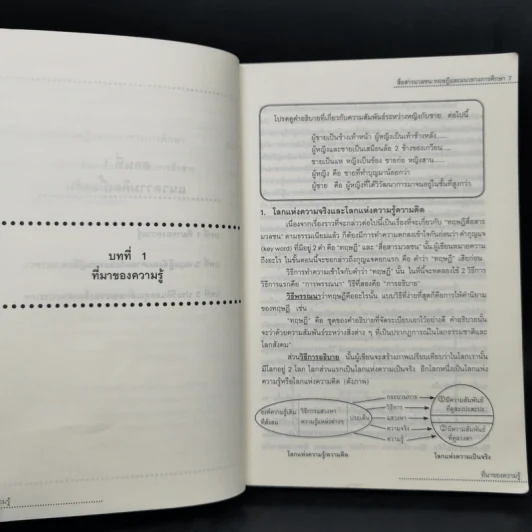 บทที่ 1
ที่มาของความรู้
ความรู้
สื่อสารมวลชน:ทฤษฎีและแนวทางการศึกษา 7
โปรดดูคำอธิบายที่เกี่ยวกับความสัมพันธ์ระหว่างหญิงกับชาย ต่อไปนี้
ผู้ชายเป็นช้างเท้าหน้า ผู้หญิงเป็นเท้าช้างหลัง.....
ผู้หญิงและชายเป็นเสมือนล้อ 2 ข้างของเกวียน....
ชายเป็นแห หญิงเป็นข้อง ชายก่อ หญิงสาน.....
ผู้หญิง คือ ชายที่ทำบุญมาน้อยกว่า
ผู้ชาย คือ ผู้หญิงที่ได้วิวัฒนาการมาจนอยู่ในขั้นที่สูงกว่า
1. โลกแห่งความจริงและโลกแห่งความรู้ความคิด
เนื่องจากเรื่องราวที่จะกล่าวต่อไปนี้เป็นเรื่องที่จะเกี่ยวกับ "ทฤษฎีสื่อสาร
มวลชน" ตามธรรมเนียมแล้ว ก็ต้องมีการทำความตกลงเข้าใจกันก่อนว่า คำกุญแจ
(key word) ที่มีอยู่ 2 คำ คือ "ทฤษฎี" และ "สื่อสารมวลชน" นั้น ผู้เขียนหมายความ
ถึงอะไร ในขั้นตอนนี้จะขอกล่าวถึงกุญแจดอกแรก คือ คำว่า "ทฤษฎี" เสียก่อน
วิธีการทำความเข้าใจกับคำว่า "ทฤษฎี" นั้น ในที่นี้จะทดลองใช้ 2 วิธีการ
วิธีการแรกคือ "การพรรณนา" วิธีที่สองคือ "การอธิบาย"
วิธีพรรณนาว่าทฤษฎีคืออะไรนั้น แบบวิธีที่ง่ายที่สุดก็คือการให้คำนิยาม
ของทฤษฎี เช่น
"ทฤษฎี" คือ ชุดของคำอธิบายที่จัดระเบียบเอาไว้อย่างดี คำอธิบายนั้น
จะว่าด้วยความสัมพันธ์ระหว่างสิ่งต่าง ๆ ที่เป็นปรากฏการณ์ในโลกธรรมชาติและ
โลกสังคม"
ส่วนวิธีการอธิบาย นั้นผู้เขียนจะสร้างภาพเปรียบเทียบว่าในโลกเรานั้น
มีโลกอยู่ 2 โลก โลกส่วนแรกเป็นโลกแห่งความเป็นจริง อีกโลกหนึ่งเป็นโลกแห่ง
ความรู้หรือโลกแห่งความคิด (ดังภาพ)
องค์ความรู้เดิม
ที่สั่งสม
วิธีการแสวงหา
ความรู้แหล่งต่างๆ
ประเด็น
กระบวนการ
วิธีการ
แสวงหา
ความจริง
ความรู้
①มีความสัมพันธ์
②มีความสัมพันธ์
โลกแห่งความรู้/ความคิด
โลกแห่งความเป็นจริง
ที่มาของความรู้